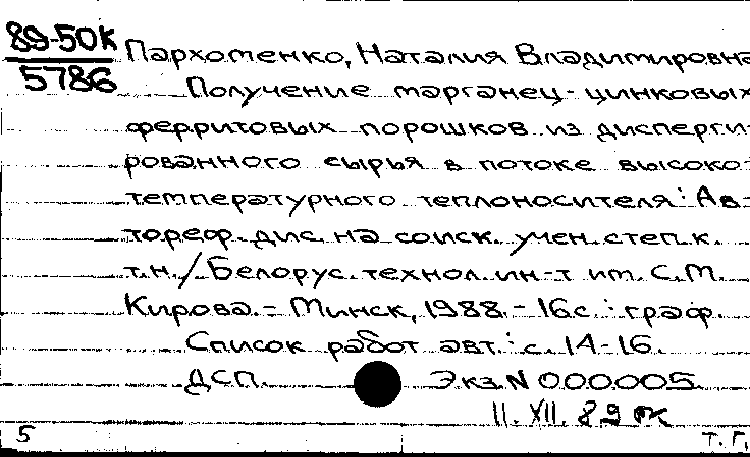 89-50К
5786
Пархоменко, Наталия Владимировна
Получение марганец-цинковых
ферритовых порошков из дисперги-
рованного сырья в потоке высоко-
температурного теплоносителя: Ав-
тореф. дис. на соиск. учен. степ. к.
т.н. / Белорус. технол. ин-т им. С.М.
Кирова. - Минск, 1988. - 16с. : граф.
Список работ авт.: с. 14-16.
ДСП. Экз. N 000005
11. XII. 89
5 т. Г.